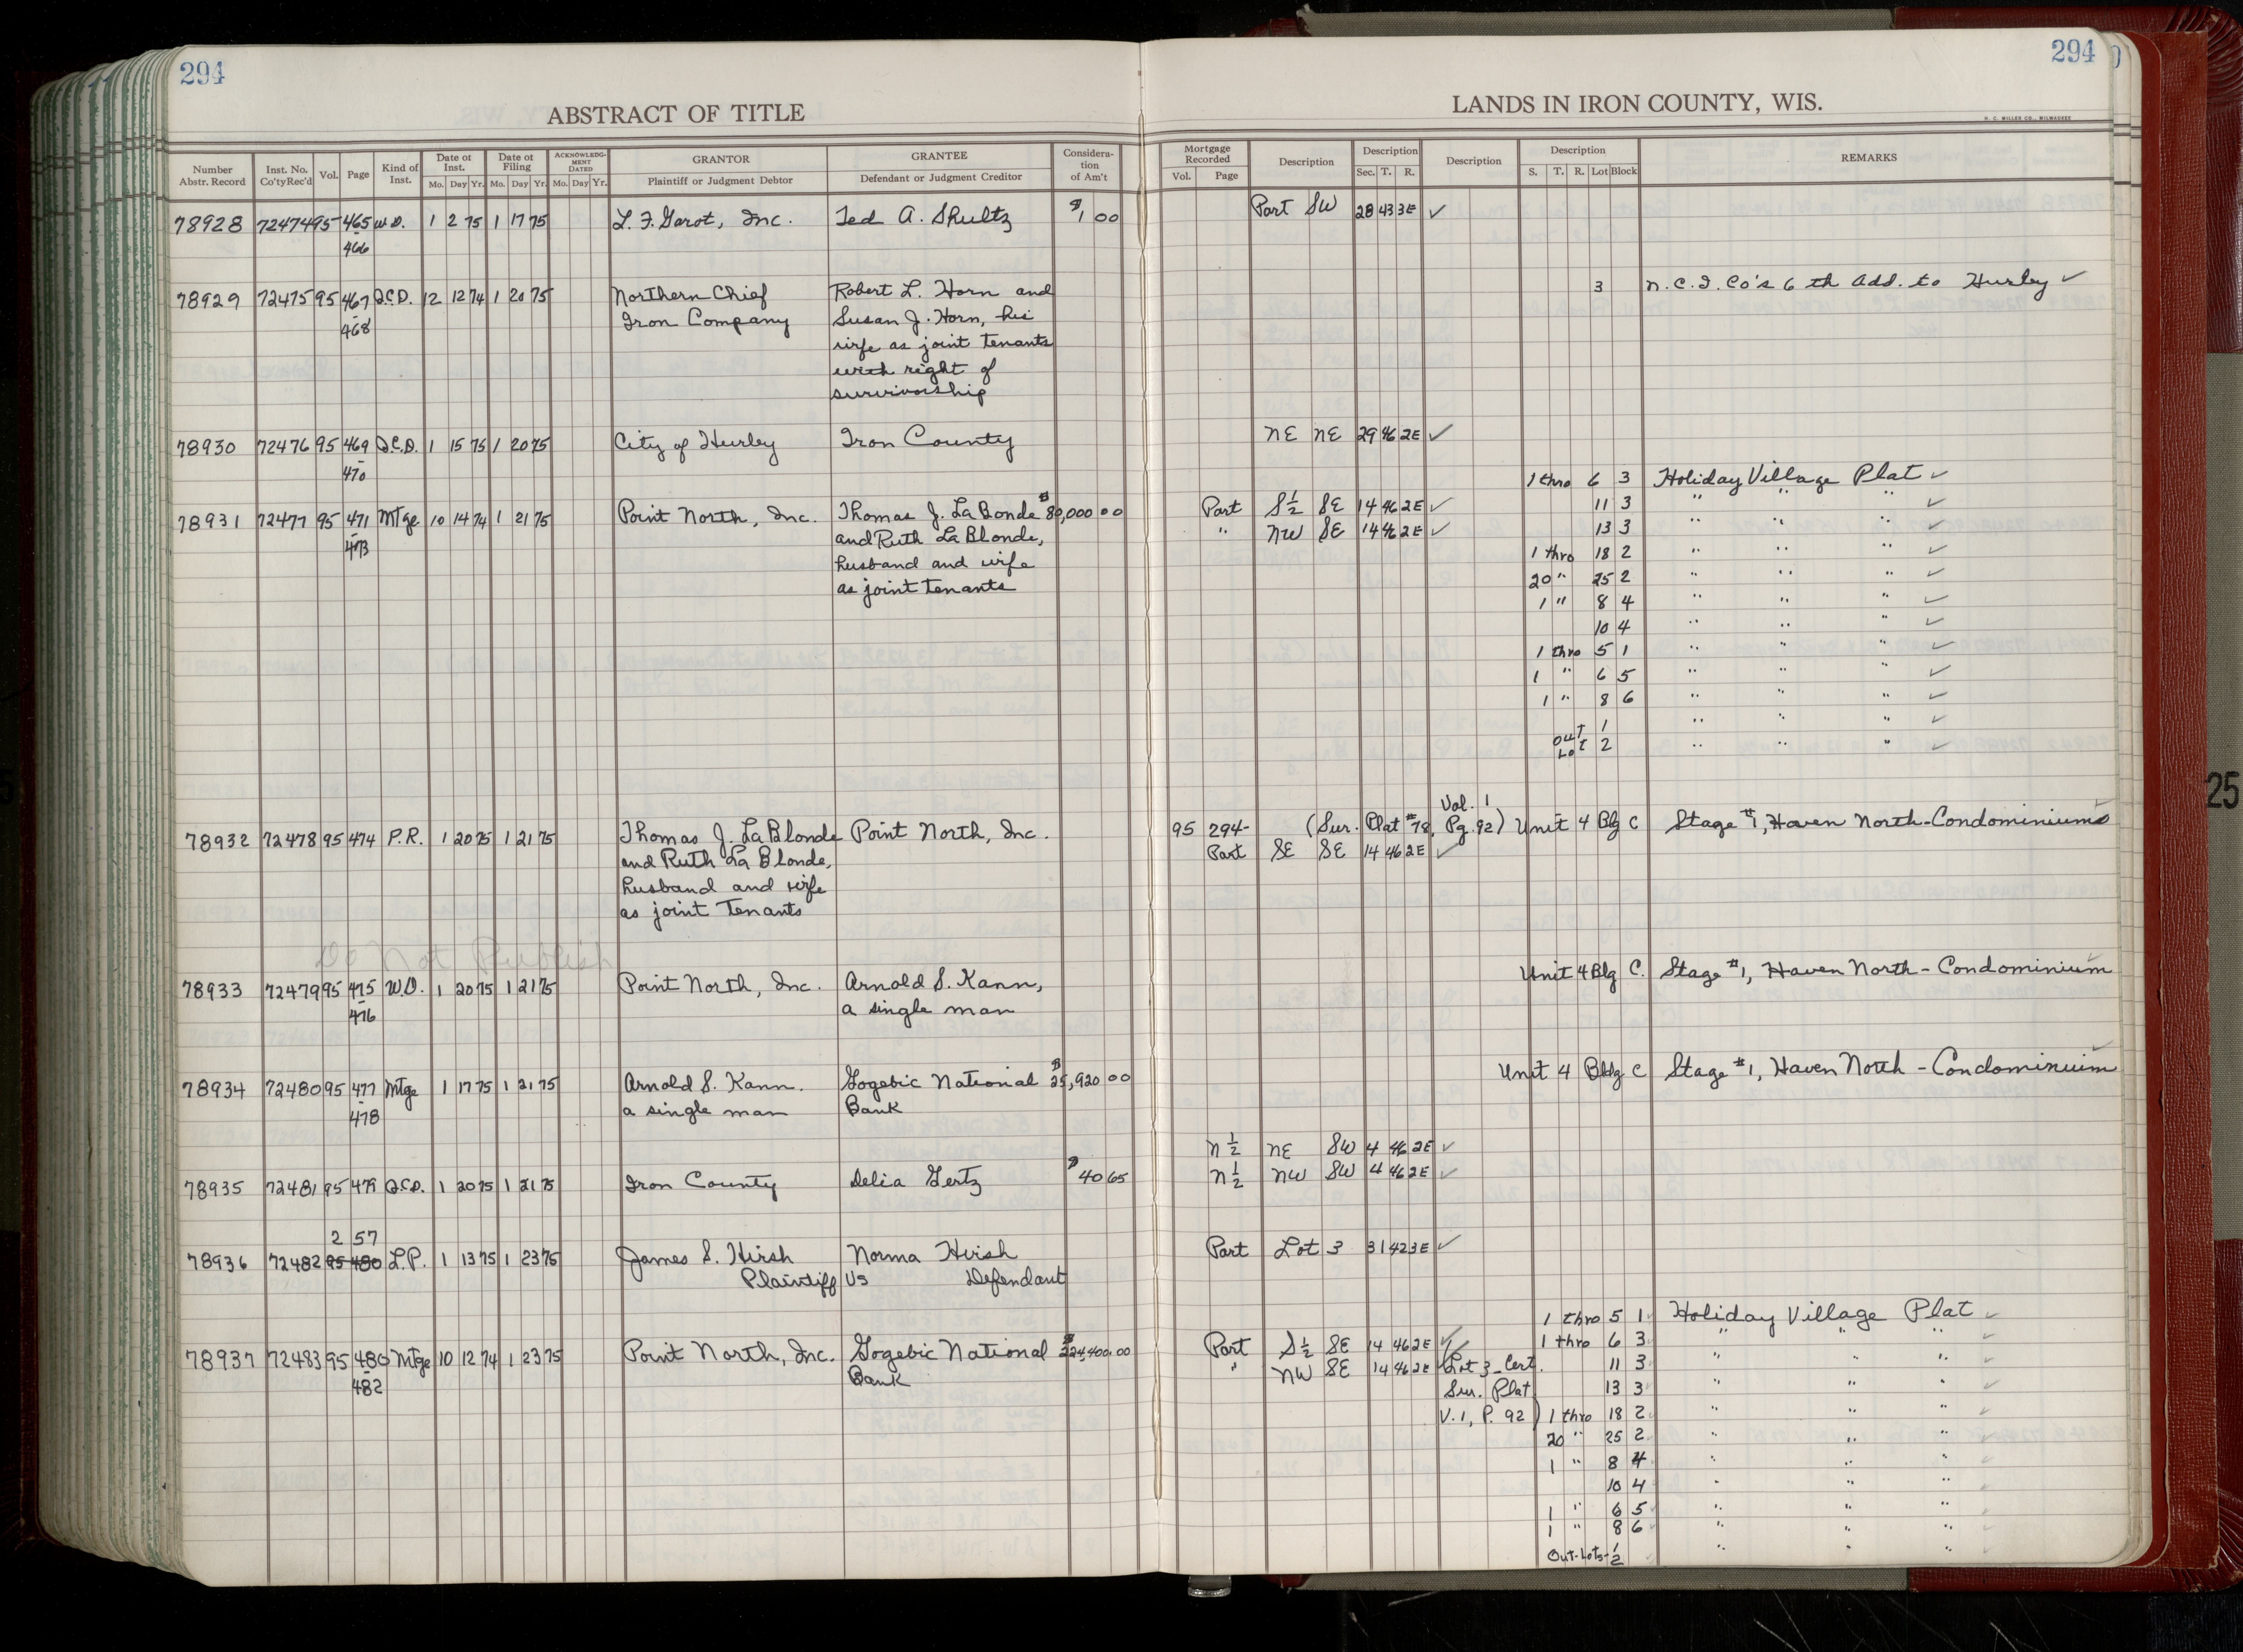 294
294
ABSTRACT OF TITLE
LANDS IN IRON COUNTY, WIS.
H. C. MILLER CO., MILWAUKEE
Number Abstr. Record | Inst. No. Co'ty Rec'd | Vol. | Page | Kind of Inst. | Date of Inst. Mo. Day Yr. | Date of Filing Mo. Day Yr. | ACKNOWLEDGMENT DATED Mo. Day Yr. | GRANTOR Plaintiff or Judgment Debtor | GRANTEE Defendant or Judgment Creditor | Consideration of Am't
Mortgage Recorded Vol. Page | Description | Description Sec. T. R. | Description | Description S. T. R. Lot Block | REMARKS
78928 72474 95 465 W.D. 1 2 75 1 17 75 L. F. Garot, Inc. Ted A. Shultz $1 00 Part SW 28 43 3E ✓
466
78929 72475 95 467 Q.C.D. 12 12 74 1 20 75 Northern Chief Robert L. Horn and 3 N.C.I. Co's 6 th Add. to Hurley ✓
- 468 Iron Company Susan J. Horn, his
wife as joint tenants
with right of
survivorship
78930 72476 95 469 Q.C.D. 1 15 75 1 20 75 City of Hurley Iron County NE NE 29 46 2E ✓
- 470
1 thro 6 3 Holiday Village Plat ✓
78931 72477 95 471 Mtge 10 14 74 1 21 75 Point North, Inc. Thomas J. La Bonde $80,000 00 Part S½ SE 14 46 2E ✓ 11 3 " " " ✓
- 473 and Ruth La Blonde, " NW SE 14 46 2E ✓ 13 3 " " " ✓
husband and wife 1 thro 18 2 " " " ✓
as joint tenants 20 " 25 2 " " " ✓
1 " 8 4 " " " ✓
10 4 " " " ✓
1 thro 5 1 " " " ✓
1 " 6 5 " " " ✓
1 " 8 6 " " " ✓
out 1 " " " ✓
Lot 2 " " " ✓
Vol. 1
78932 72478 95 474 P.R. 1 20 75 1 21 75 Thomas J. La Blonde Point North, Inc. 95 294- (Sur. Plat #78, Pg. 92) Unit 4 Blg C Stage #1, Haven North-Condominiums
and Ruth La Blonde, Part SE SE 14 46 2E ✓
husband and wife
as joint tenants
Do Not Publish
78933 72479 95 475 W.D. 1 20 75 1 21 75 Point North, Inc. Arnold S. Kann, Unit 4 Blg C. Stage #1, Haven North - Condominium
- 476 a single man
78934 72480 95 477 Mtge 1 17 75 1 21 75 Arnold S. Kann. Gogebic National $25,920 00 Unit 4 Bldg C Stage #1, Haven North - Condominium
- 478 a single man Bank
N½ NE SW 4 46 2E ✓
78935 72481 95 479 Q.C.D. 1 20 75 1 21 75 Iron County Delia Gertz $40 65 N½ NW SW 4 46 2E ✓
2 57
78936 72482 95 480 L.P. 1 13 75 1 23 75 James S. Hirsh Norma Hirsh Part Lot 3 31 42 3E ✓
Plaintiff Vs Defendant
1 thro 5 1 Holiday Village Plat ✓
78937 72483 95 480 Mtge 10 12 74 1 23 75 Point North, Inc. Gogebic National $224,400.00 Part S½ SE 14 46 2E ✓ 1 thro 6 3 " " " ✓
- 482 Bank " NW SE 14 46 2E (Lot 3 - Cert. 11 3 " " " ✓
Sur. Plat 13 3 " " " ✓
V. 1, P. 92) 1 thro 18 2 " " " ✓
20 " 25 2 " " " ✓
1 " 8 4 " " " ✓
10 4 " " " ✓
1 " 6 5 " " " ✓
1 " 8 6 " " " ✓
Out-Lots-1/2 " " " ✓
25